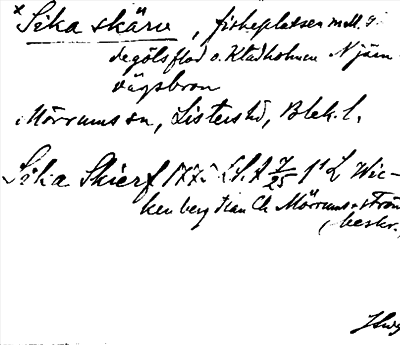 × Sika skärv, fiskeplatsen mell.
degölsflod o. Kladholmen N järn-
vägsbron
Mörrums sn, Listers hd, Blek. l.
Sika Skierf 1772 LSA 7/25 1:1 L Wic-
kenberg Han Ch Mörrums ström
(beskr.